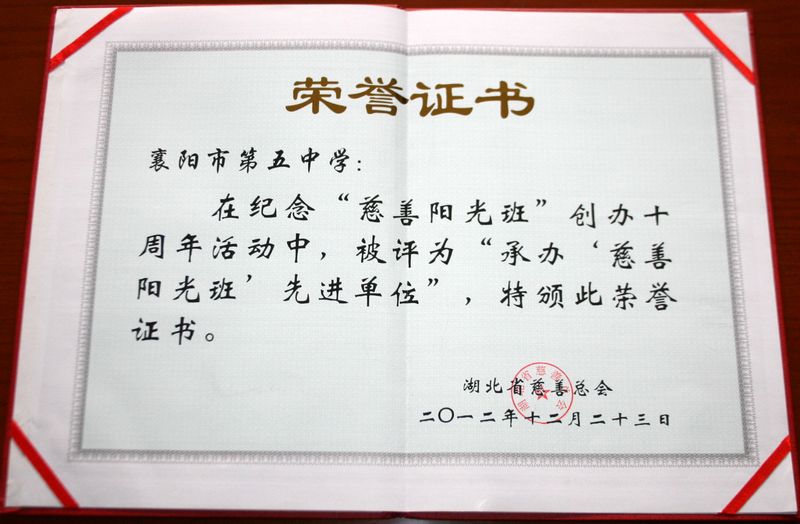 荣誉证书
襄阳市第五中学：
在纪念“慈善阳光班”创办十
周年活动中，被评为“承办‘慈善
阳光班’先进单位”，特颁此荣誉
证书。
湖北省慈善总会
二〇一二年十二月二十三日